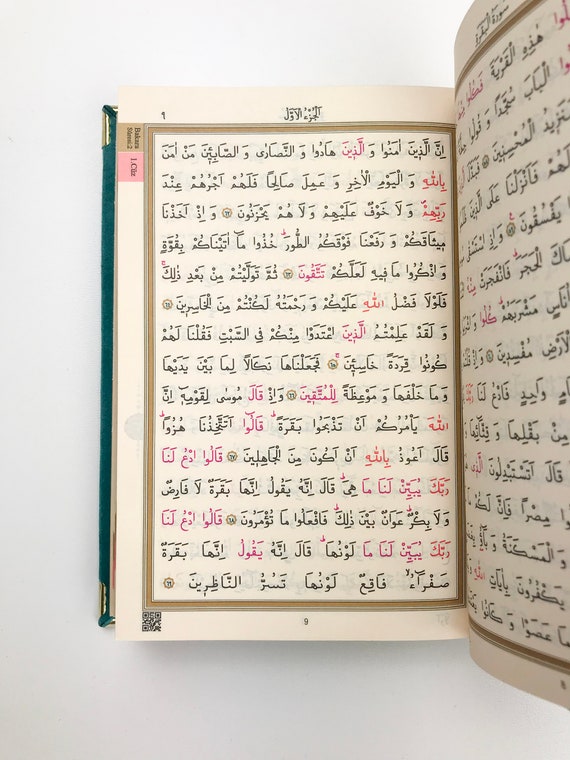 ٩
اَلْجُزْءُ الْاَوَّلُ
Bakara
Sûresi 2
1.Cüz
اِنَّ الَّذِينَ اٰمَنُوا وَ الَّذِينَ هَادُوا وَ النَّصَارٰى وَ الصَّابِئِينَ مَنْ اٰمَنَ
بِاللّٰهِ وَ الْيَوْمِ الْاٰخِرِ وَ عَمِلَ صَالِحًا فَلَهُمْ اَجْرُهُمْ عِنْدَ
رَبِّهِمْ وَ لَا خَوْفٌ عَلَيْهِمْ وَ لَا هُمْ يَحْزَنُونَ ﴿٦٢﴾ وَ اِذْ اَخَذْنَا
مِيثَاقَكُمْ وَ رَفَعْنَا فَوْقَكُمُ الطُّورَ خُذُوا مَا اٰتَيْنَاكُمْ بِقُوَّةٍ
وَ اذْكُرُوا مَا فِيهِ لَعَلَّكُمْ تَتَّقُونَ ﴿٦٣﴾ ثُمَّ تَوَلَّيْتُمْ مِنْ بَعْدِ ذٰلِكَ
فَلَوْلَا فَضْلُ اللّٰهِ عَلَيْكُمْ وَ رَحْمَتُهُ لَكُنْتُمْ مِنَ الْخَاسِرِينَ ﴿٦٤﴾
وَ لَقَدْ عَلِمْتُمُ الَّذِينَ اعْتَدَوْا مِنْكُمْ فِي السَّبْتِ فَقُلْنَا لَهُمْ
كُونُوا قِرَدَةً خَاسِئِينَ ﴿٦٥﴾ فَجَعَلْنَاهَا نَكَالًا لِمَا بَيْنَ يَدَيْهَا
وَ مَا خَلْفَهَا وَ مَوْعِظَةً لِلْمُتَّقِينَ ﴿٦٦﴾ وَاِذْ قَالَ مُوسٰى لِقَوْمِهِ اِنَّ
اللّٰهَ يَأْمُرُكُمْ اَنْ تَذْبَحُوا بَقَرَةً قَالُوا اَتَتَّخِذُنَا هُزُوًا
قَالَ اَعُوذُ بِاللّٰهِ اَنْ اَكُونَ مِنَ الْجَاهِلِينَ ﴿٦٧﴾ قَالُوا ادْعُ لَنَا
رَبَّكَ يُبَيِّنْ لَنَا مَا هِيَ قَالَ اِنَّهُ يَقُولُ اِنَّهَا بَقَرَةٌ لَا فَارِضٌ
وَ لَا بِكْرٌ عَوَانٌ بَيْنَ ذٰلِكَ فَافْعَلُوا مَا تُؤْمَرُونَ ﴿٦٨﴾ قَالُوا ادْعُ لَنَا
رَبَّكَ يُبَيِّنْ لَنَا مَا لَوْنُهَا قَالَ اِنَّهُ يَقُولُ اِنَّهَا بَقَرَةٌ
صَفْرَاءُ فَاقِعٌ لَوْنُهَا تَسُرُّ النَّاظِرِينَ ﴿٦٩﴾
9
سُورَةُ الْبَقَرَةِ
هٰذِهِ الْقَرْيَةَ فَكُلُوا
الْبَابَ سُجَّدًا وَ قُولُوا
الْمُحْسِنِينَ
فَاَنْزَلْنَا عَلَى الَّذِينَ
يَفْسُقُونَ
الْحَجَرَ فَانْفَجَرَتْ مِنْهُ
مَشْرَبَهُمْ كُلُوا
الْاَرْضِ مُفْسِدِينَ
وَاحِدٍ فَادْعُ لَنَا
مِنْ بَقْلِهَا وَ قِثَّائِهَا
قَالَ اَتَسْتَبْدِلُونَ الَّذِي
مِصْرًا فَاِنَّ لَكُمْ
وَ الْمَسْكَنَةُ وَ بَاؤُ
يَكْفُرُونَ بِاٰيَاتِ اللّٰهِ
عَصَوْا وَ كَانُوا
8